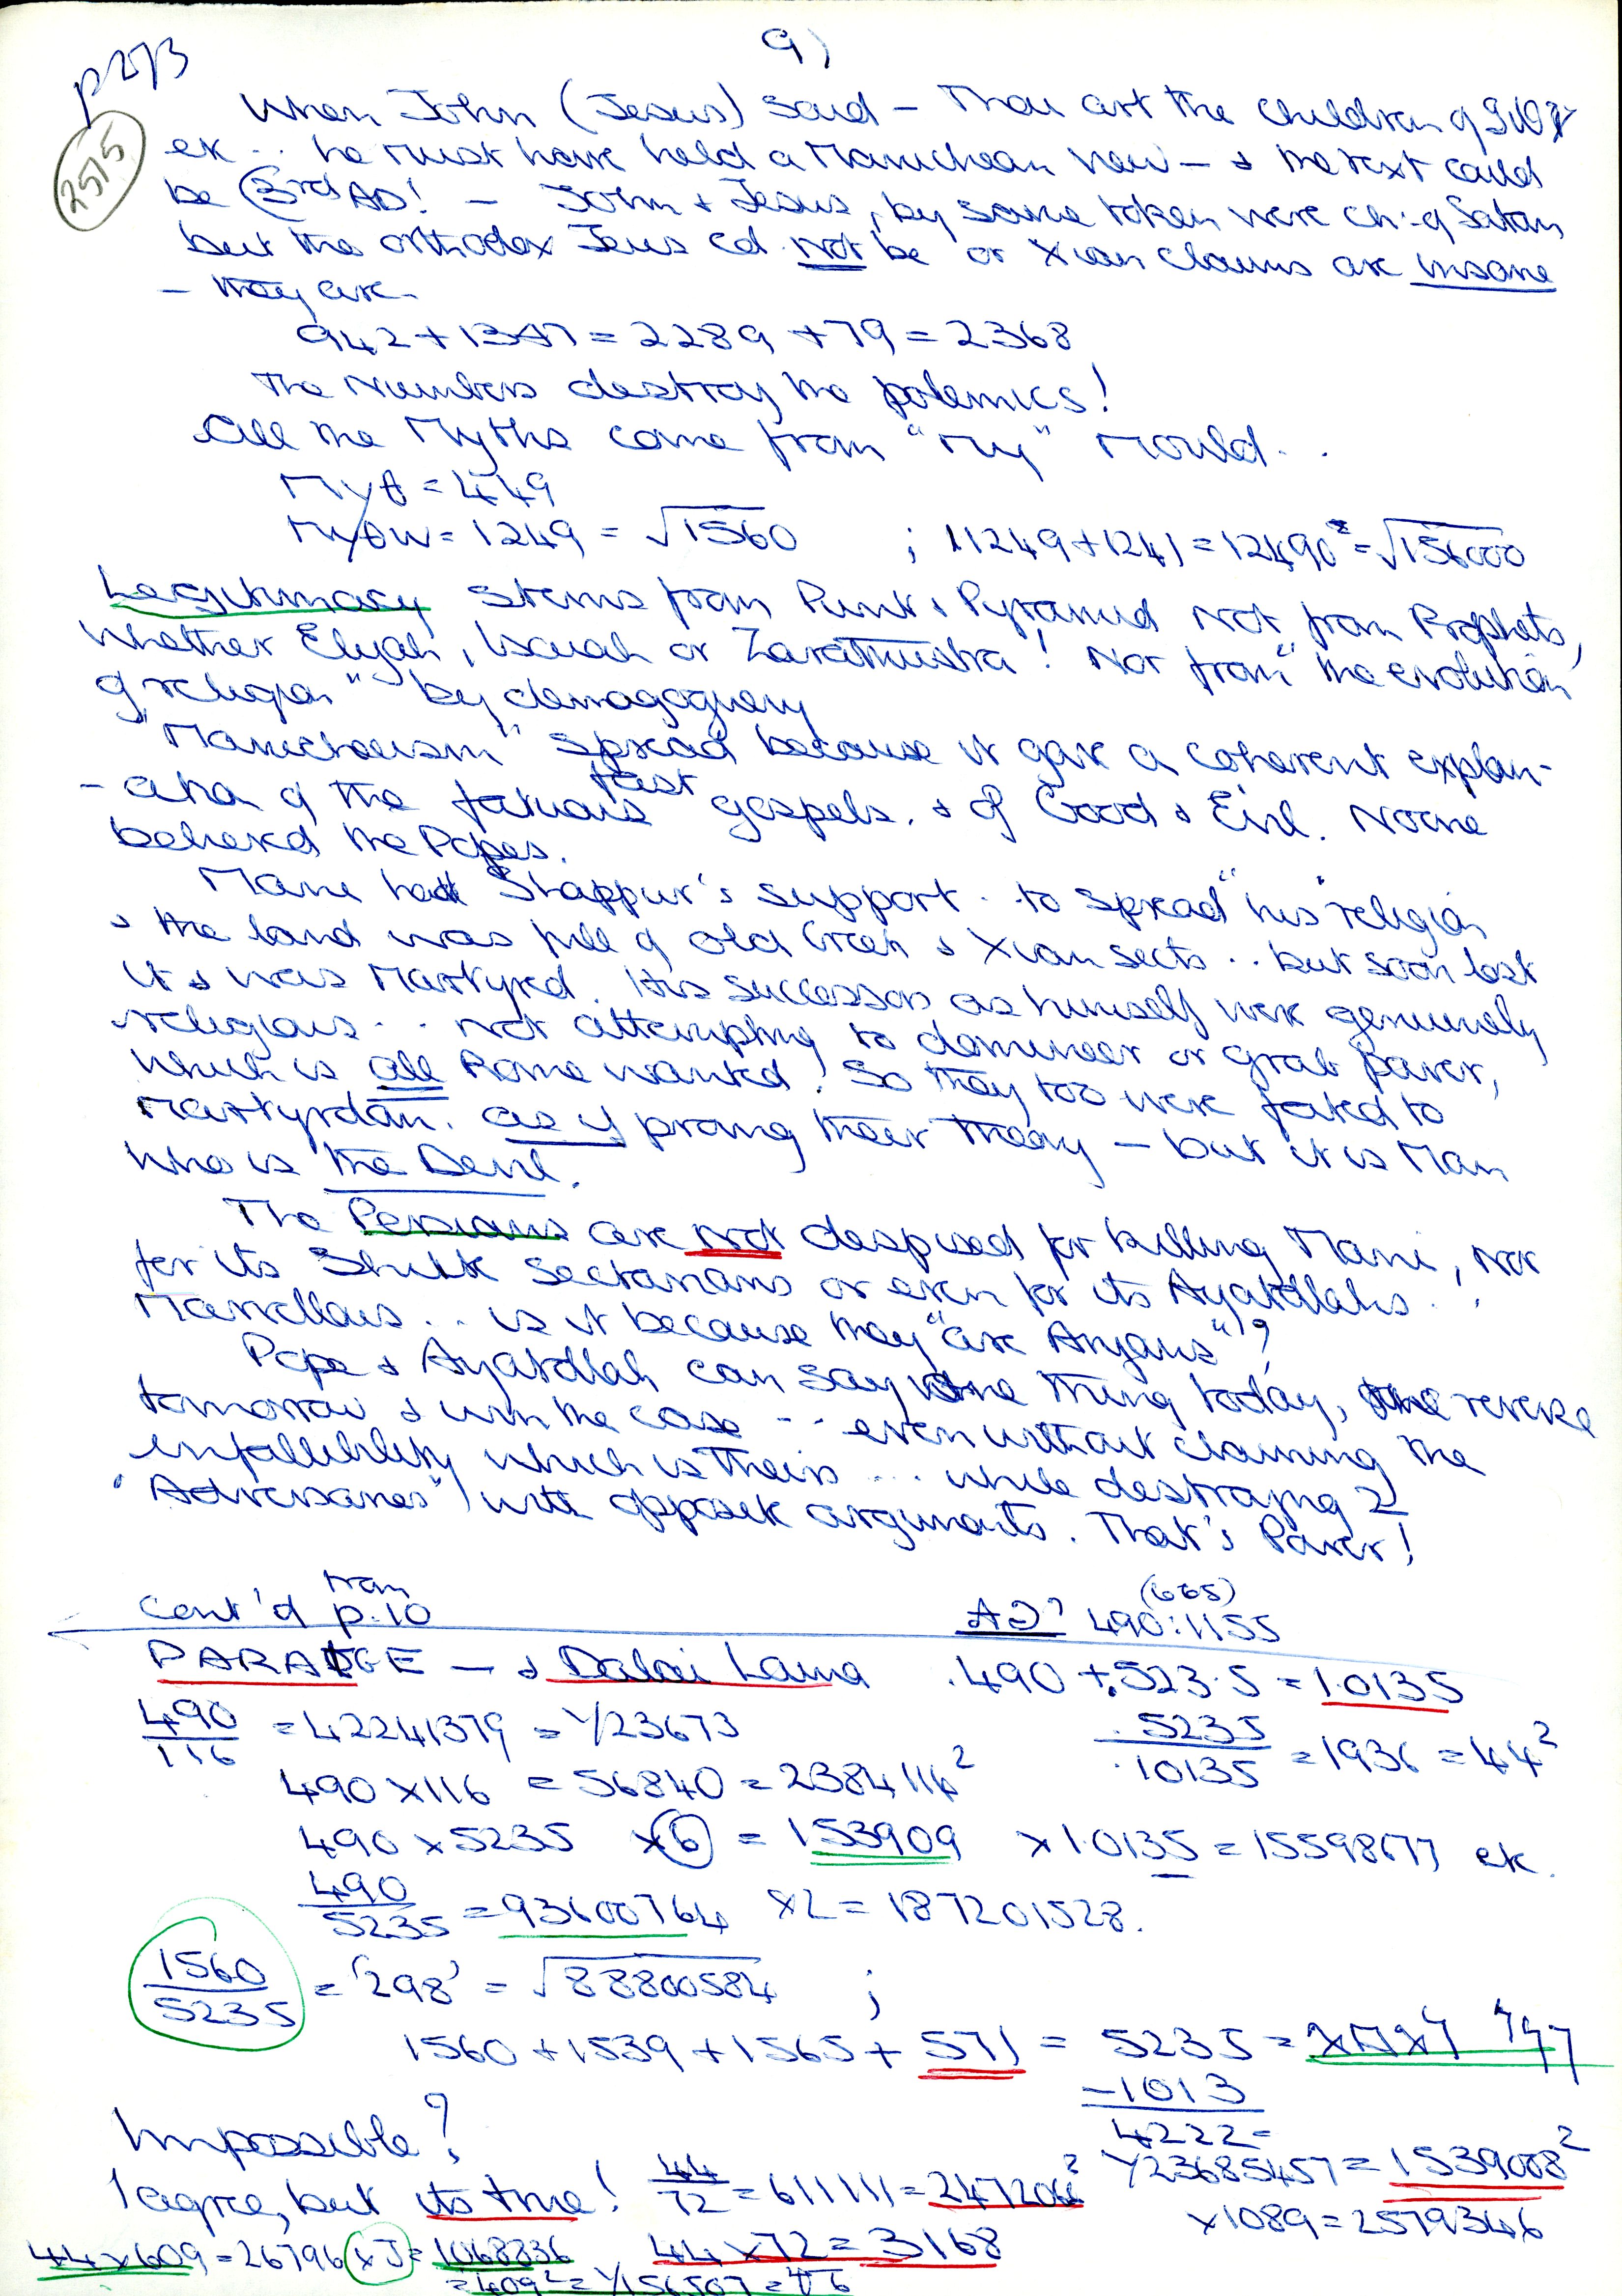 9)
p273
2575
When John (Jesus) said – Thou art the children of
ek .. he must have held a Manichean view – & the text could
be 3rd AD! – John & Jesus, by same token were ch. of Satan
but the orthodox Jews cd. not be or Xian claims are insane
– they are.
942 + 1347 = 2289 + 79 = 2368
The Numbers destroy the polemics!
All the Myths come from "My" Mould. .
Myθ = 449
Myθw = 1249 = √1560 ; 11249 + 1241 = 12490² = √156000
Legitimacy stems from Punt & Pyramid not from Prophets,
whether Elijah, Isaiah or Zarathustra! Nor from "the evolution
of religion" by demagoguery
"Manicheism" spread because it gave a coherent explan-
-ation of the fatuous gospels. & of Good & Evil. Noone
believed the Popes.
Mani had Shappur's support . . to spread "his" religion
& the land was full of old Greek & Xian sects . . but soon lost
it & was Martyred. His successors as himself were genuinely
religious . . not attempting to domineer or grab power,
which is all Rome wanted! So they too were fated to
Martyrdom. as if proving their theory – but it is Man
who is the Devil.
The Persians are not despised for killing Mani, nor
for its Shiite sectarians or even for its Ayatollahs . .
Marvellous . . is it because they "are Aryans"!?
Pope & Ayatollah can say one thing today, the reverse
tomorrow & win the case - - even without claiming the
infallibility which is theirs ... while destroying 2
"Adversaries" with opposite arguments. That's Power!
Cont'd from p.10 (665)
490:1155
PARAIGE – & Dalai Lama .490 + .523.5 = 1.0135
490/116 = 42241379 = 1/23673 .5235/.10135 = 1936 = 44²
490 × 116 = 56840 = 2384116²
490 × 5235 × 6 = 153909 × 1.0135 = 15598677 ek.
490/5235 = 93600764 × 2 = 187201528.
1560/5235 = '298' = √88800584 ;
1560 + 1539 + 1565 + 571 = 5235 =
-1013
4222 =
Impossible? 1/23685457 = 1539008²
I agree, but its true! 44/72 = 611111 = 2472066² × 1089 = 2579346
44 × 609 = 26796 × J = 1068236 44 × 72 = 3168
= 409² = 1/156507 =